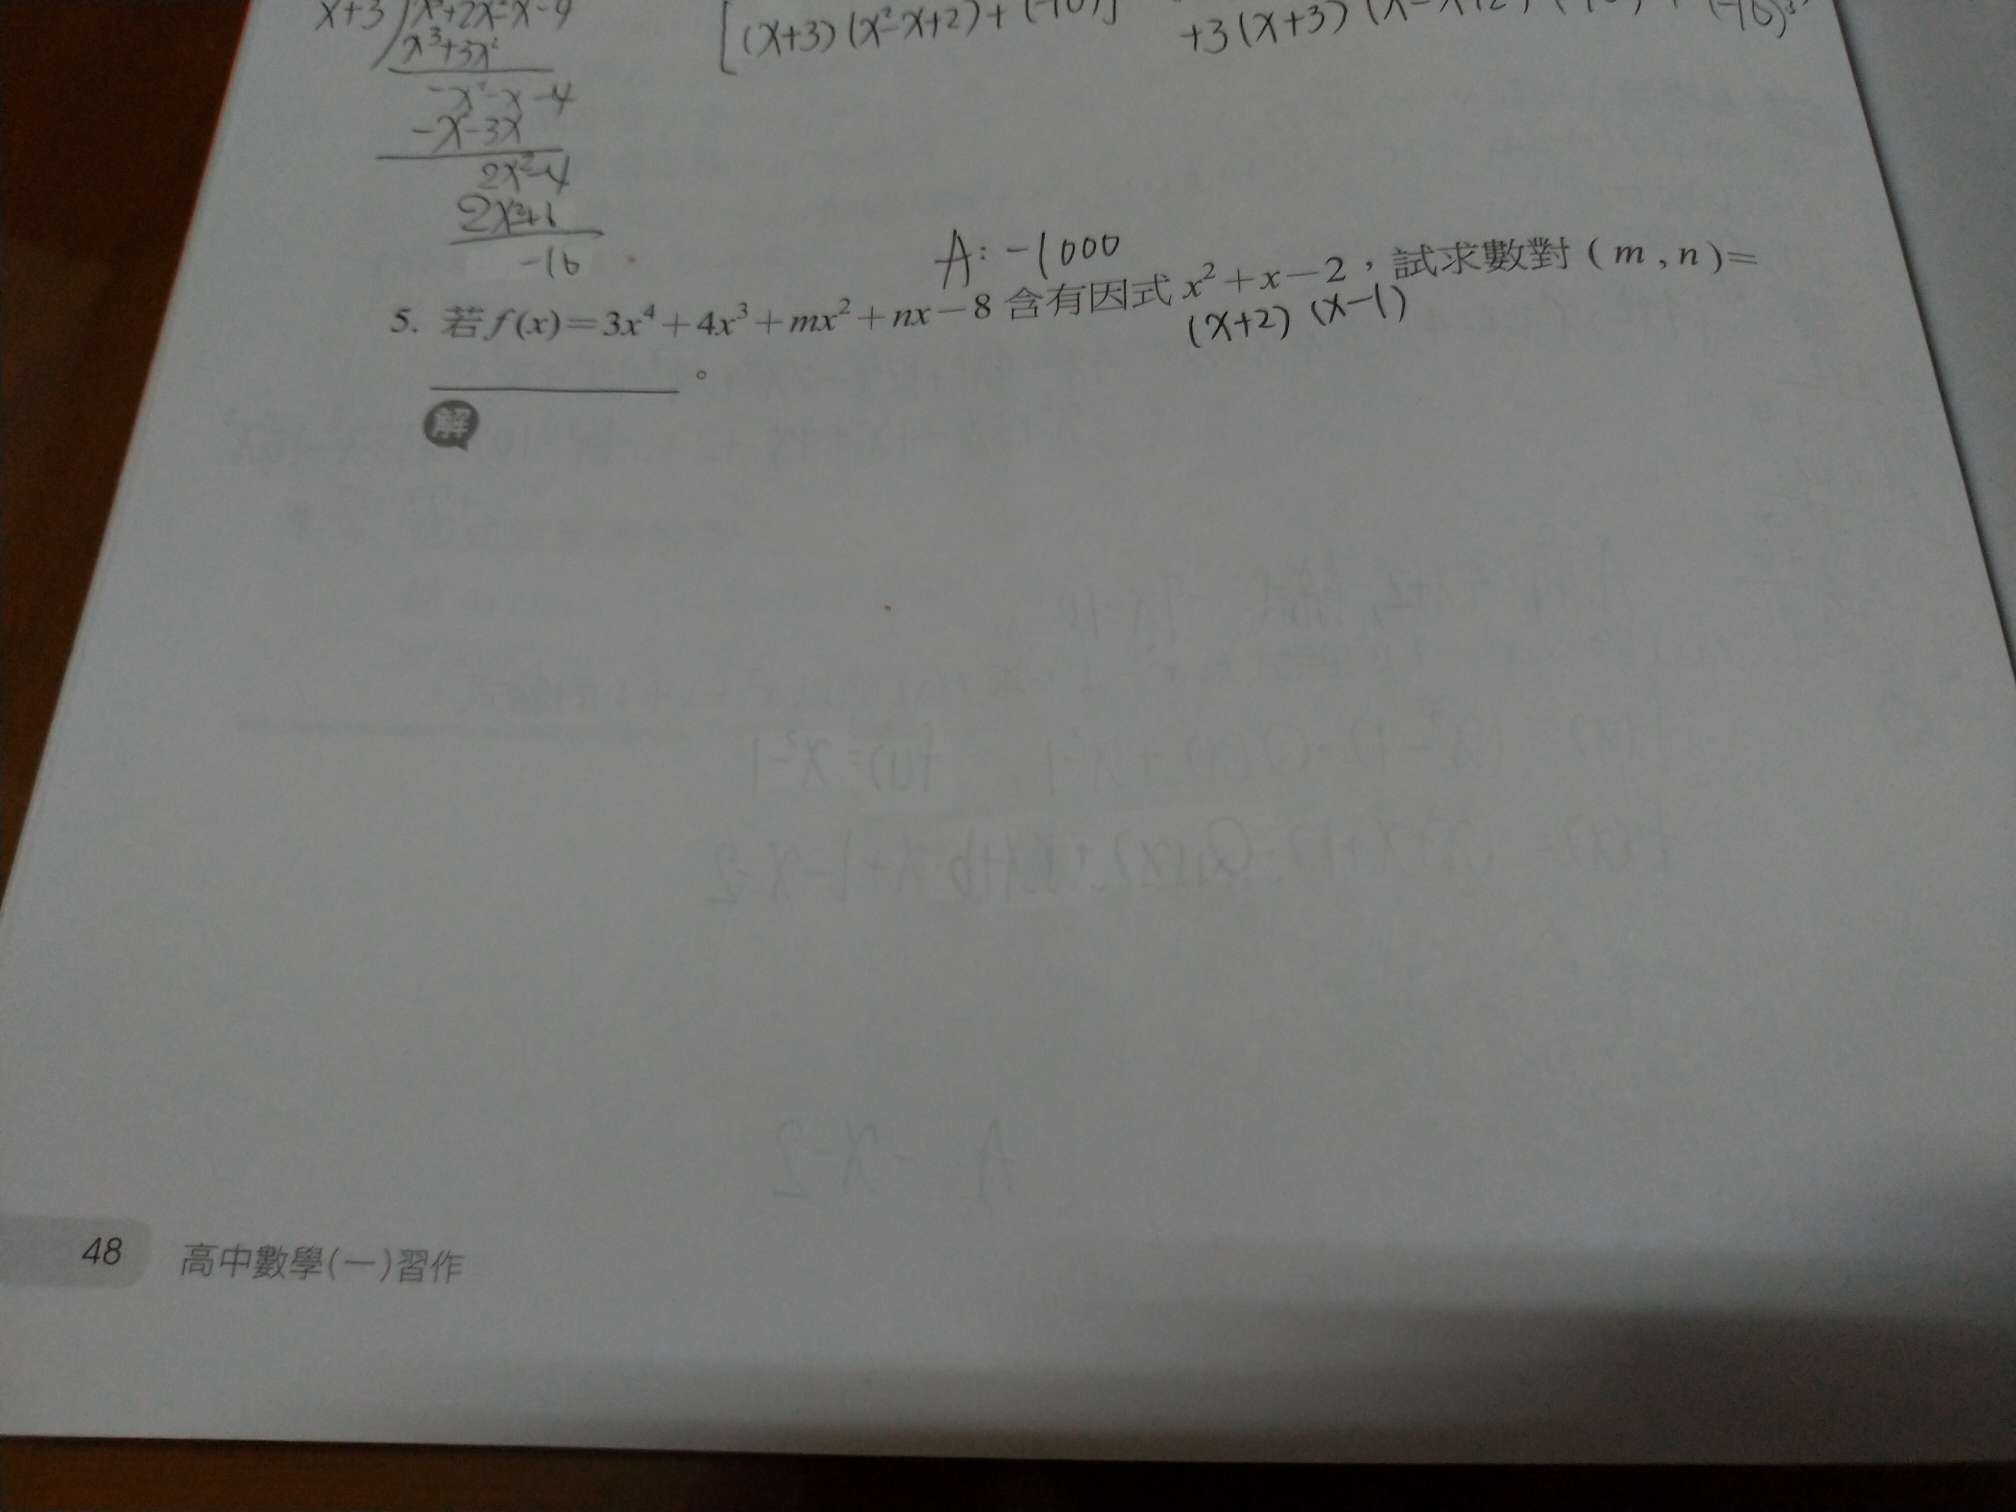 x+3 x³+2x²-x-4
x³+3x²
-x²-x-4
-x-3x
2x²-4
2x²+6
-10
[(x+3)(x²-x+2)+(-10)]
+3(x+3)
A: -1000
5. 若f(x)=3x⁴+4x³+mx²+nx-8 含有因式 x²+x-2，試求數對 ( m , n )=
(x+2) (x-1)
。
解
48 高中數學(一)習作